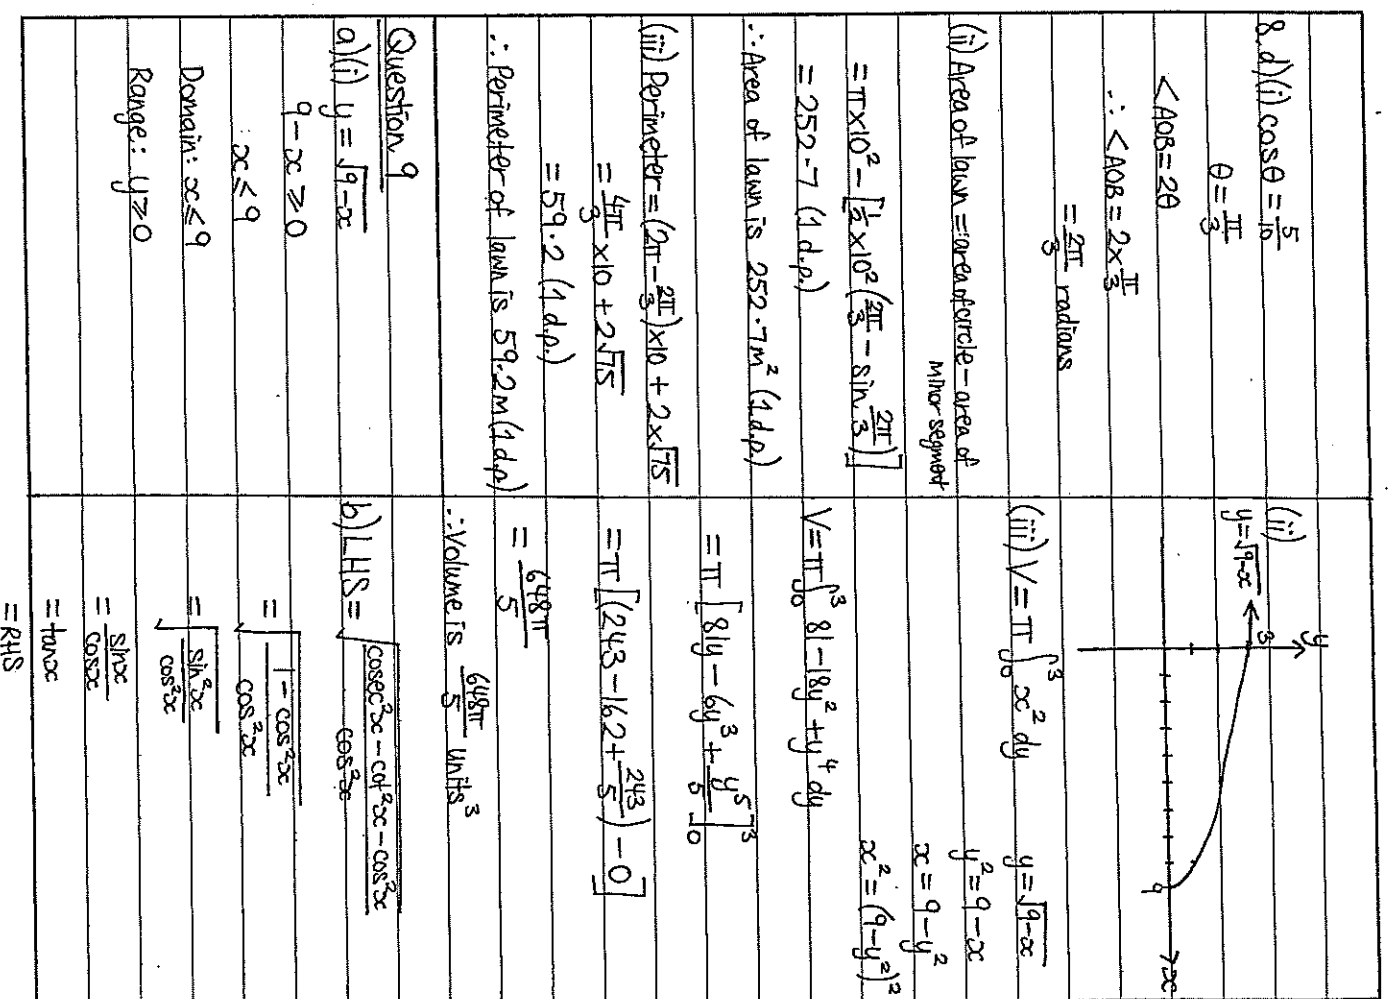 8.d)(i) cosθ = 5/10
θ = π/3
<AOB = 2θ
∴ <AOB = 2 × π/3
= 2π/3 radians
(ii) Area of lawn = area of circle - area of minor segment
= π×10² - [½×10²(2π/3 - sin 2π/3)]
= 252.7 (1 d.p.)
∴ Area of lawn is 252.7m² (1 d.p.)
(iii) Perimeter = (2π - 2π/3)×10 + 2×√75
= 4π/3 ×10 + 2√75
= 59.2 (1 d.p.)
∴ Perimeter of lawn is 59.2m (1 d.p.)
Question 9
a)(i) y = √(9-x)
9-x ≥ 0
∴ x ≤ 9
Domain: x ≤ 9
Range: y ≥ 0
(ii)
y
y=√(9-x)
3
9
x
(iii) V = π ∫₀³ x² dy
y = √(9-x)
y² = 9-x
x = 9-y²
x² = (9-y²)²
V = π ∫₀³ 81 - 18y² + y⁴ dy
= π [81y - 6y³ + y⁵/5]₀³
= π [(243 - 162 + 243/5) - 0]
= 648π/5
∴ Volume is 648π/5 units³
b) LHS = √((cosec²x - cot²x - cos²x)/cos²x)
= √((1 - cos²x)/cos²x)
= √(sin²x/cos²x)
= sinx/cosx
= tanx
= RHS